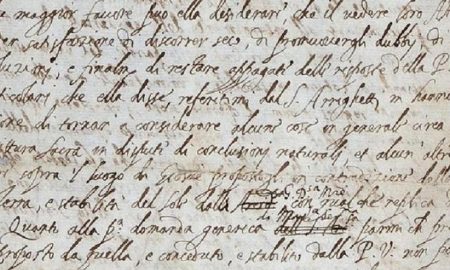 maggior favore può ella desiderar, che il vedere loro
satisfazione di discorrer seco, di promuovergli dubbj, di
e finalm. di restare appagate delle risposte della P.
che ella disse referitimi dal S. Arrighetti, m' hanno
di tornar' a considerare alcune cose in generale circa
sacra in dispute di conclusioni naturali, et alcun' altre
sopra il luogo di Giosue propostogli, in contradizione della
terra, e stabilità del Sole dalla G. D.sa M.re con qualche replica
Quanto alla p.a domanda generica parmi che
proposto da quella, e conceduto, e stabilito dalla P. V. non